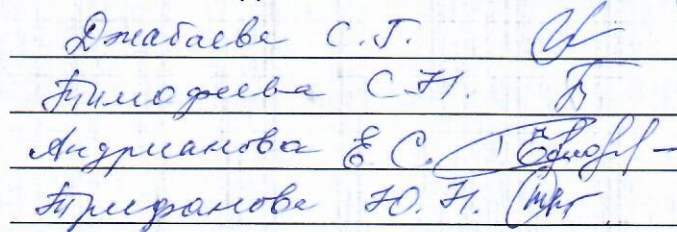 Джабаева С. Г.
Тимофеева С.Н.
Андрианова Е С.
Трифанова Ю. Н.